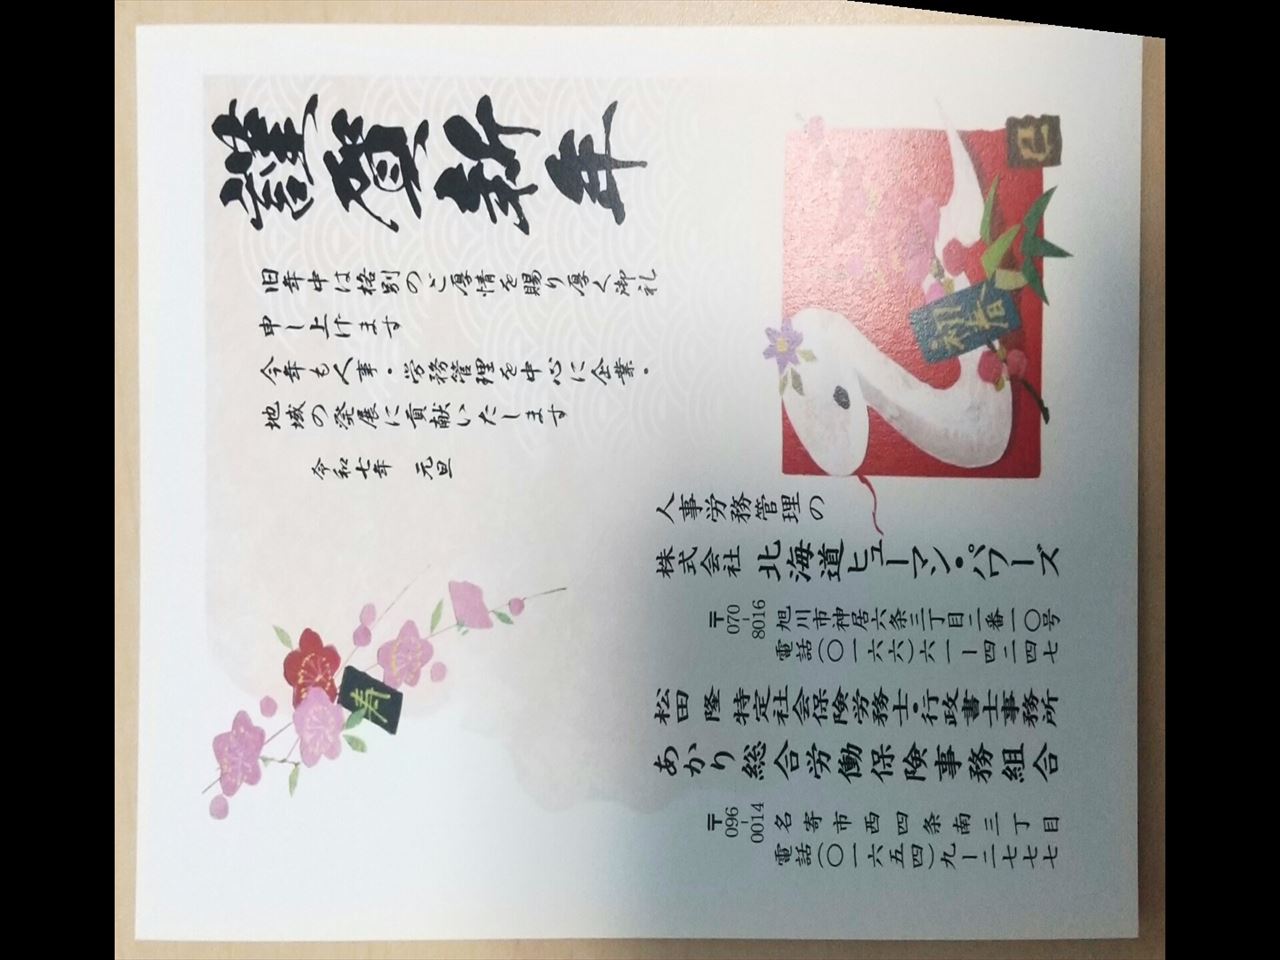 謹賀新年
旧年中は格別のご厚情を賜り厚く御礼
申し上げます
今年も人事・労務管理を中心に企業・
地域の発展に貢献いたします
令和七年 元旦
寿
巳
初春
人事労務管理の
株式会社 北海道ヒューマン・パワーズ
〒070-8016 旭川市神居六条三丁目二番一〇号
電話(〇一六六)六一ー四二四七
松田 隆 特定社会保険労務士・行政書士事務所
あかり総合労働保険事務組合
〒096-0014 名寄市西四条南三丁目
電話(〇一六五四)九ー二七七七